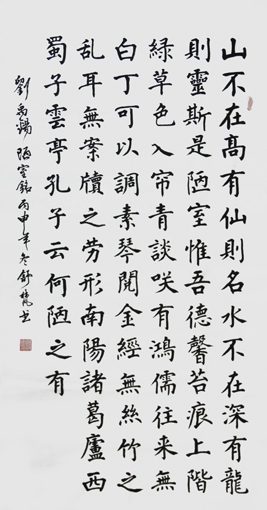 山不在髙有仙則名水不在深有龍
則靈斯是陋室惟吾德馨苔痕上階
緑草色入帘青談咲有鴻儒往来無
白丁可以調素琴閱金經無絲竹之
亂耳無案牘之勞形南陽諸葛廬西
蜀子雲亭孔子云何陋之有
劉禹錫陋室銘丙申年冬舒書